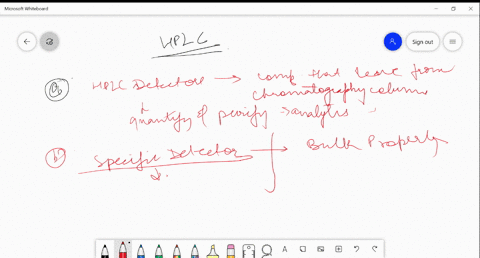 Microsoft Whiteboard
Sign out
HPLC
(a) HPLC Detectors → comp that leave from
chromatography column
quantify & purify analytes
(b) Specific Detector → Bulk Property